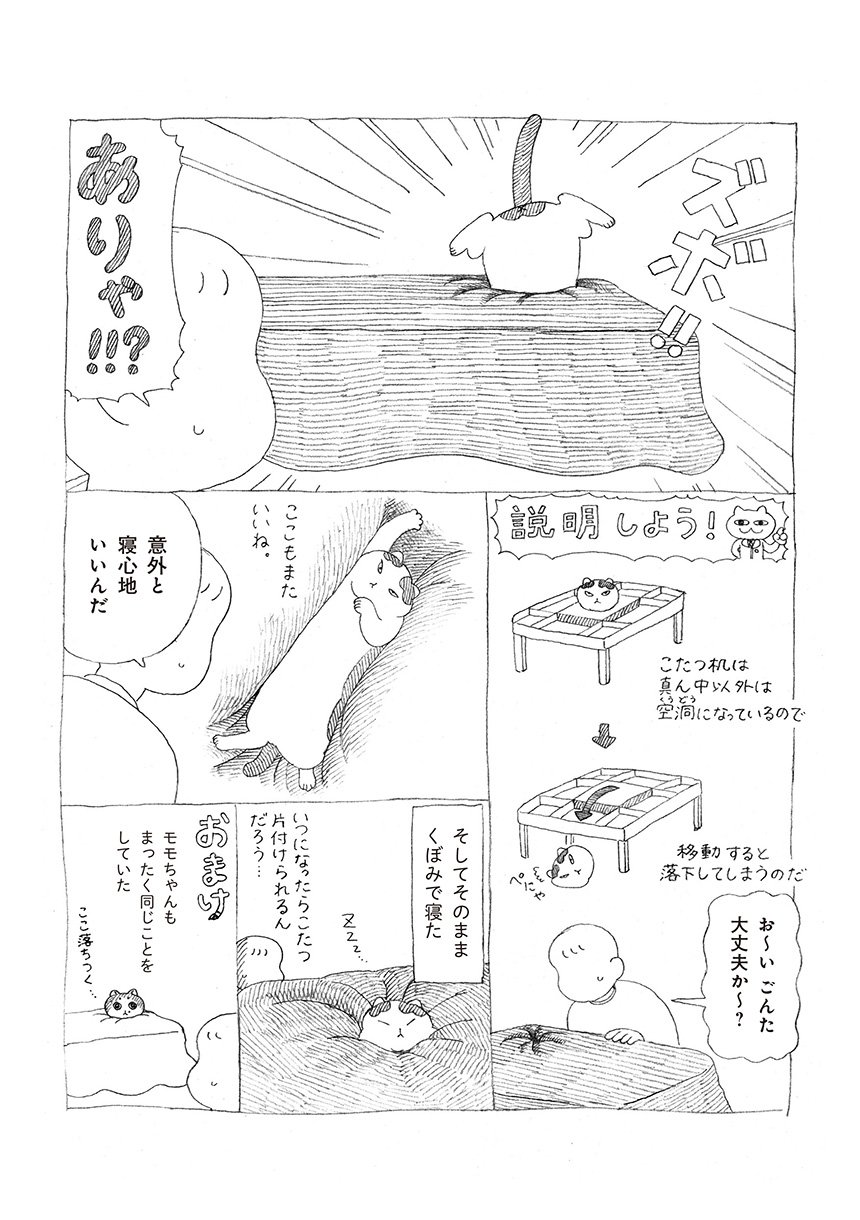 ズボ!!
ありゃ!!!?
説明しよう!
こたつ机は
真ん中以外は
空洞になっているので
くうどう
移動すると
落下してしまうのだ
ぺにゃ
お〜い ごんた
大丈夫か〜?
ここもまた
いいね。
意外と
寝心地
いいんだ
そしてそのまま
くぼみで寝た
Zzz…
いつになったらこたつ
片付けられるん
だろう…
おまけ
モモちゃんも
まったく同じことを
していた
ここ落ちつく…